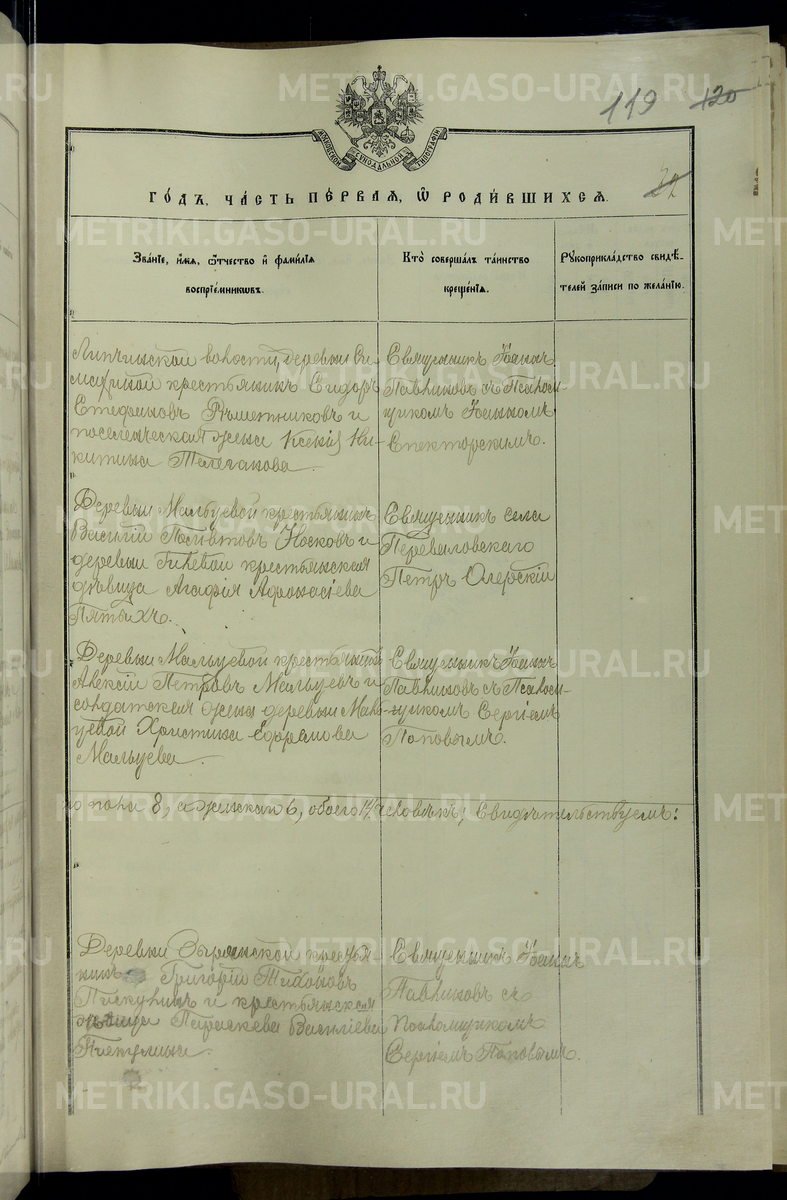 119 120
МОСКОВСКОЙ СѴНОДАЛЬНОЙ ТИПОГРАФІИ
32
ГО́ДЪ, ЧА́СТЬ ПЕ́РВАЯ, Ѡ҆ РОДИ́ВШИХСЯ.
Зва́нїе, и҆́мя, ѻ҆́тчество и҆ фами́лїя
воспрїе́мникѡвъ.
Кто̀ соверша́лъ та́инство
креще́нїя.
Рꙋкоприкла́дство свидѣ́-
телей за́писи по жела́нїю.
Липчинской волости, деревни Си-
махиной крестьянинъ Сидоръ
Стефановъ Рѣшетниковъ и
поселенческая жена Ксенія Ни-
китина Талеганова.
Священникъ Іоаннъ
Павлиновъ съ Псаломи-
щикомъ Іоанномъ
Спекторскимъ.
Деревни Мальцевой крестьянинъ
Василій Носковъ и
деревни Гилевой крестьянская
дѣвица Агафія Афонасіева
Пятыхъ.
Священникъ села
Переваловскаго
Петръ Озерскій
Деревни Мальцевой крестьянинъ
Алексій Петровъ Мальцевъ и
солдатская жена деревни Маль-
цевой Христина Ефрамова
Мальцева.
Священникъ Іоаннъ
Павлиновъ съ Псалом-
щикомъ Сергіемъ
Поповымъ.
го пола 8, а женскаго 6, обоего 14 человѣкъ, Свидѣтельствуемъ:
Деревни Зырянской крестья-
нинъ Григорій Тихоновъ
Пискулинъ и крестьянская
дѣвица Параскева Васильева
Пикулина.
Священникъ Іоаннъ
Павлиновъ съ
Псаломщикомъ
Сергіемъ Поповымъ.
METRIKI.GASO-URAL.RU